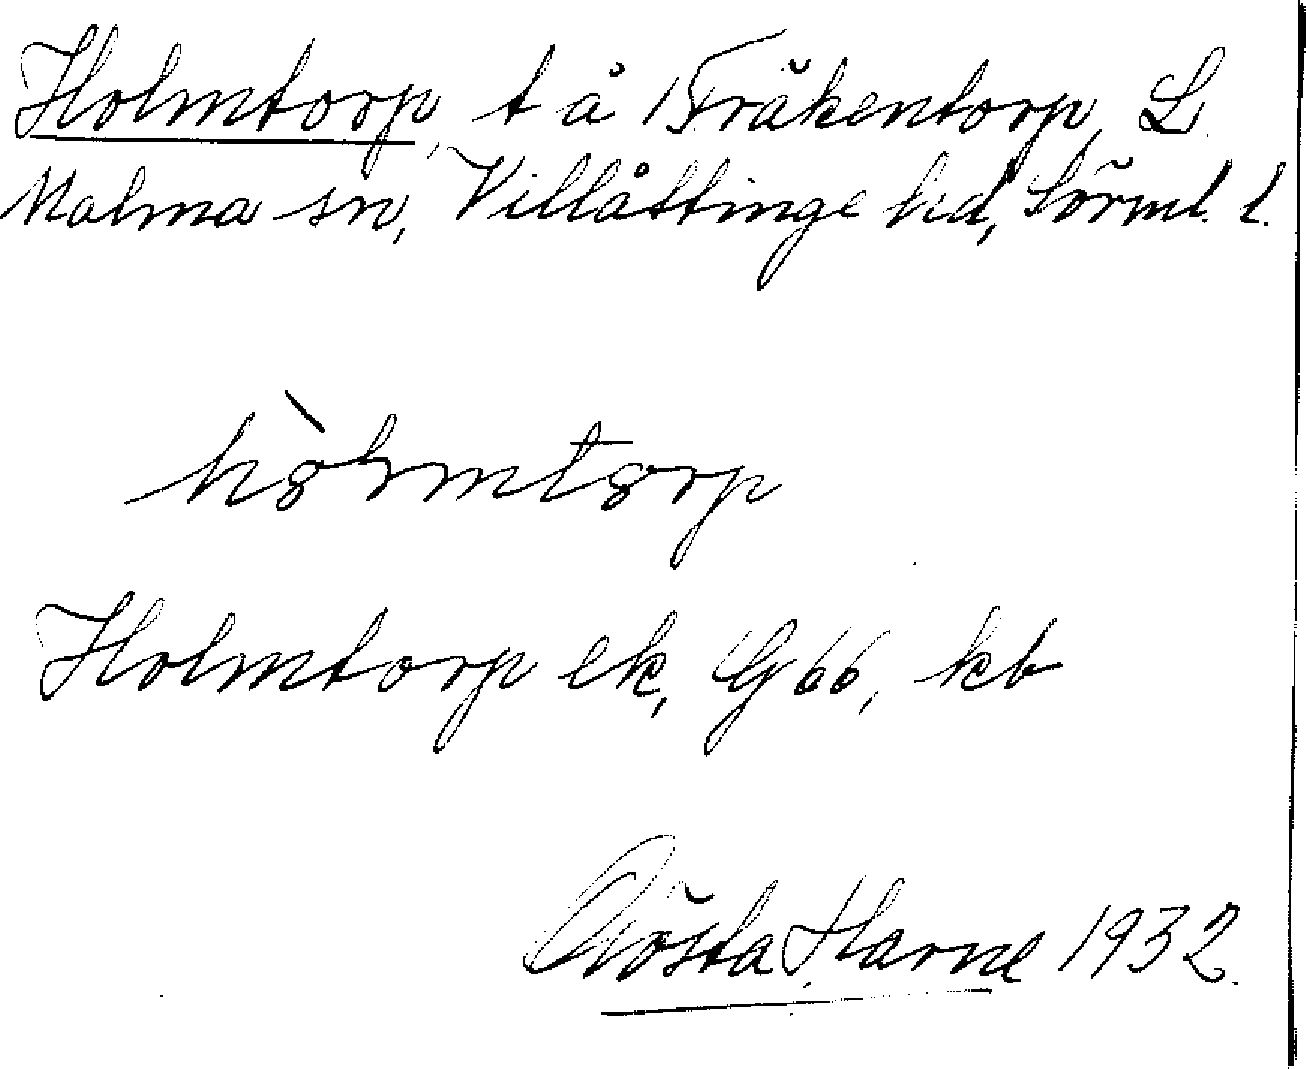 Holmtorp, t å Fräkentorp, L
Malma sn, Villåttinge hd, Sörml. l.
hòlmtorp
Holmtorp ek, G66, kb
Gösta Harne 1932.